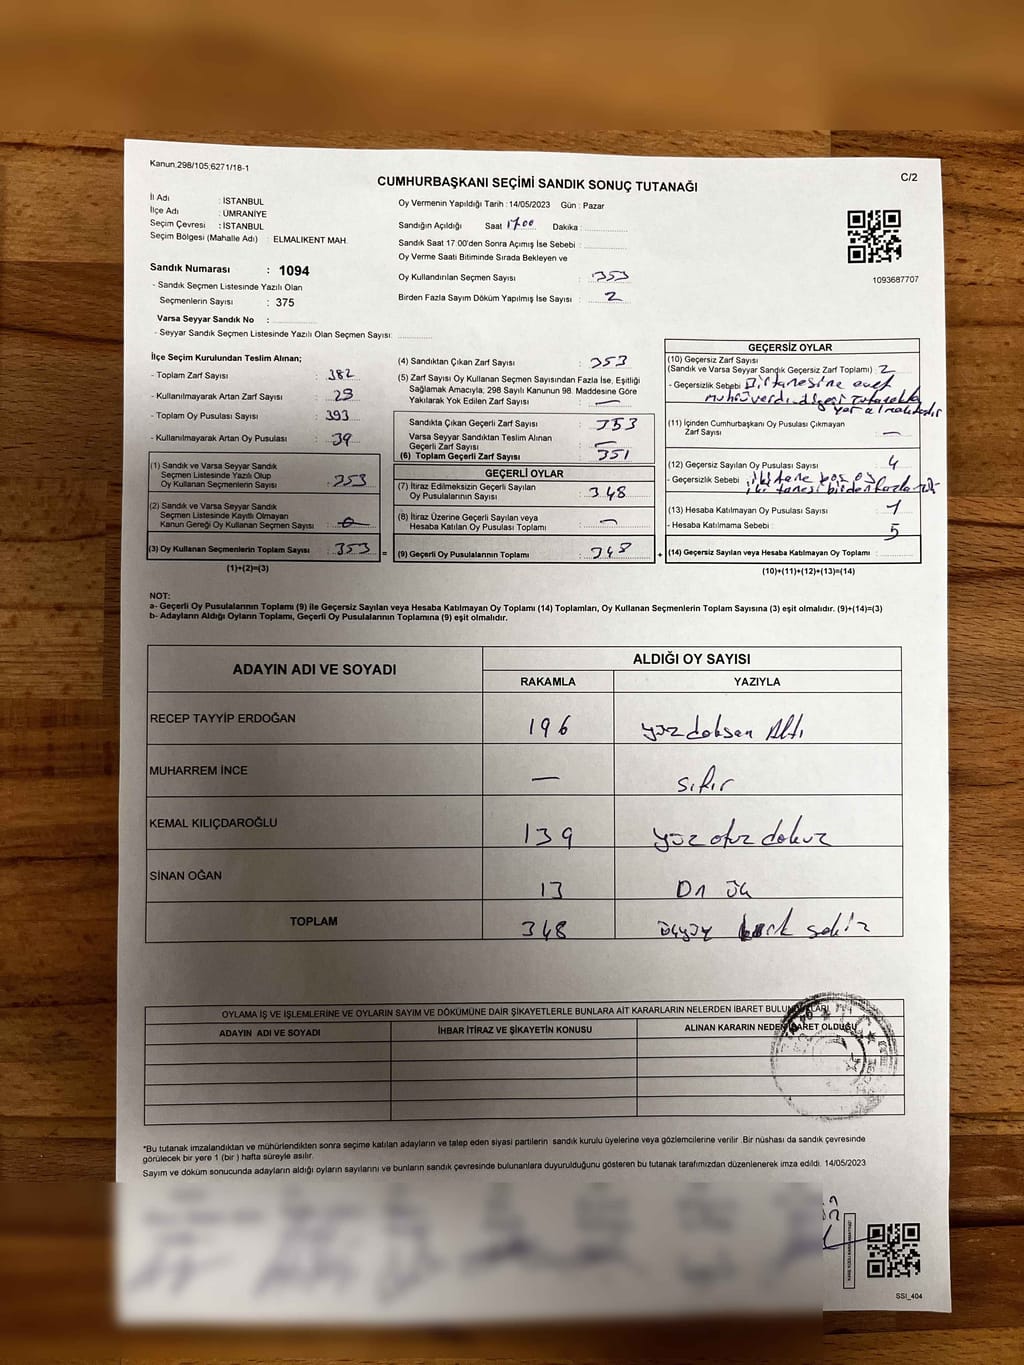 Kanun.298/105,6271/18-1
C/2
CUMHURBAŞKANI SEÇİMİ SANDIK SONUÇ TUTANAĞI
İl Adı : İSTANBUL
İlçe Adı : ÜMRANİYE
Seçim Çevresi : İSTANBUL
Seçim Bölgesi (Mahalle Adı) : ELMALIKENT MAH.
Oy Vermenin Yapıldığı Tarih : 14/05/2023 Gün : Pazar
Sandığın Açıldığı Saat 17.00 Dakika :
Sandık Saat 17.00'den Sonra Açımış İse Sebebi :
Oy Verme Saati Bitiminde Sırada Bekleyen ve
Oy Kullandırılan Seçmen Sayısı : 353
Birden Fazla Sayım Döküm Yapılmış İse Sayısı : 2
1093687707
Sandık Numarası : 1094
- Sandık Seçmen Listesinde Yazılı Olan
Seçmenlerin Sayısı : 375
Varsa Seyyar Sandık No :
- Seyyar Sandık Seçmen Listesinde Yazılı Olan Seçmen Sayısı:
İlçe Seçim Kurulundan Teslim Alınan;
- Toplam Zarf Sayısı : 382
- Kullanılmayarak Artan Zarf Sayısı : 29
- Toplam Oy Pusulası Sayısı : 393
- Kullanılmayarak Artan Oy Pusulası : 39
(1) Sandık ve Varsa Seyyar Sandık
Seçmen Listesinde Yazılı Olup
Oy Kullanan Seçmenlerin Sayısı : 353
(2) Sandık ve Varsa Seyyar Sandık
Seçmen Listesinde Kayıtlı Olmayan
Kanun Gereği Oy Kullanan Seçmen Sayısı : 0
(3) Oy Kullanan Seçmenlerin Toplam Sayısı : 353 =
(1)+(2)=(3)
(4) Sandıktan Çıkan Zarf Sayısı : 353
(5) Zarf Sayısı Oy Kullanan Seçmen Sayısından Fazla İse, Eşitliği
Sağlamak Amacıyla, 298 Sayılı Kanunun 98. Maddesine Göre
Yakılarak Yok Edilen Zarf Sayısı : —
Sandıkta Çıkan Geçerli Zarf Sayısı : 353
Varsa Seyyar Sandıktan Teslim Alınan
Geçerli Zarf Sayısı : —
(6) Toplam Geçerli Zarf Sayısı : 351
GEÇERLİ OYLAR
(7) İtiraz Edilmeksizin Geçerli Sayılan
Oy Pusulalarının Sayısı : 348
(8) İtiraz Üzerine Geçerli Sayılan veya
Hesaba Katılan Oy Pusulası Toplamı : —
(9) Geçerli Oy Pusulalarının Toplamı : 348 +
GEÇERSİZ OYLAR
(10) Geçersiz Zarf Sayısı
(Sandık ve Varsa Seyyar Sandık Geçersiz Zarf Toplamı) : 2
- Geçersizlik Sebebi : Bir tanesine evet
mührü verdndiğesi tutanakta
yer almaktadır
(11) İçinden Cumhurbaşkanı Oy Pusulası Çıkmayan
Zarf Sayısı : —
(12) Geçersiz Sayılan Oy Pusulası Sayısı : 4
- Geçersizlik Sebebi : iki tane boş oy
iki tanesi birden fazla
(13) Hesaba Katılmayan Oy Pusulası Sayısı : 1
- Hesaba Katılmama Sebebi : 5
(14) Geçersiz Sayılan veya Hesaba Katılmayan Oy Toplamı :
(10)+(11)+(12)+(13)=(14)
NOT:
a- Geçerli Oy Pusulalarının Toplamı (9) ile Geçersiz Sayılan veya Hesaba Katılmayan Oy Toplamı (14) Toplamları, Oy Kullanan Seçmenlerin Toplam Sayısına (3) eşit olmalıdır. (9)+(14)=(3)
b- Adayların Aldığı Oyların Toplamı, Geçerli Oy Pusulalarının Toplamına (9) eşit olmalıdır.
ADAYIN ADI VE SOYADI
ALDIĞI OY SAYISI
RAKAMLA YAZIYLA
RECEP TAYYİP ERDOĞAN 196 yüz doksan Altı
MUHARREM İNCE — sıfır
KEMAL KILIÇDAROĞLU 139 yüz otuz dokuz
SİNAN OĞAN 13 On üç
TOPLAM 348 üçyüz kırk sekiz
OYLAMA İŞ VE İŞLEMLERİNE VE OYLARIN SAYIM VE DÖKÜMÜNE DAİR ŞİKAYETLERLE BUNLARA AİT KARARLARIN NELERDEN İBARET BULUNDUKLARI
ADAYIN ADI VE SOYADI İHBAR İTİRAZ VE ŞİKAYETİN KONUSU ALINAN KARARIN NEDEN İBARET OLDUĞU
*Bu tutanak imzalandıktan ve mühürlendikten sonra seçime katılan adayların ve talep eden siyasi partilerin sandık kurulu üyelerine veya gözlemcilerine verilir .Bir nüshası da sandık çevresinde
görülecek bir yere 1 (bir ) hafta süreyle asılır.
Sayım ve döküm sonucunda adayların aldığı oyların sayılarını ve bunların sandık çevresinde bulunanlara duyurulduğunu gösteren bu tutanak tarafımızdan düzenlenerek imza edildi. 14/05/2023
SSI_404